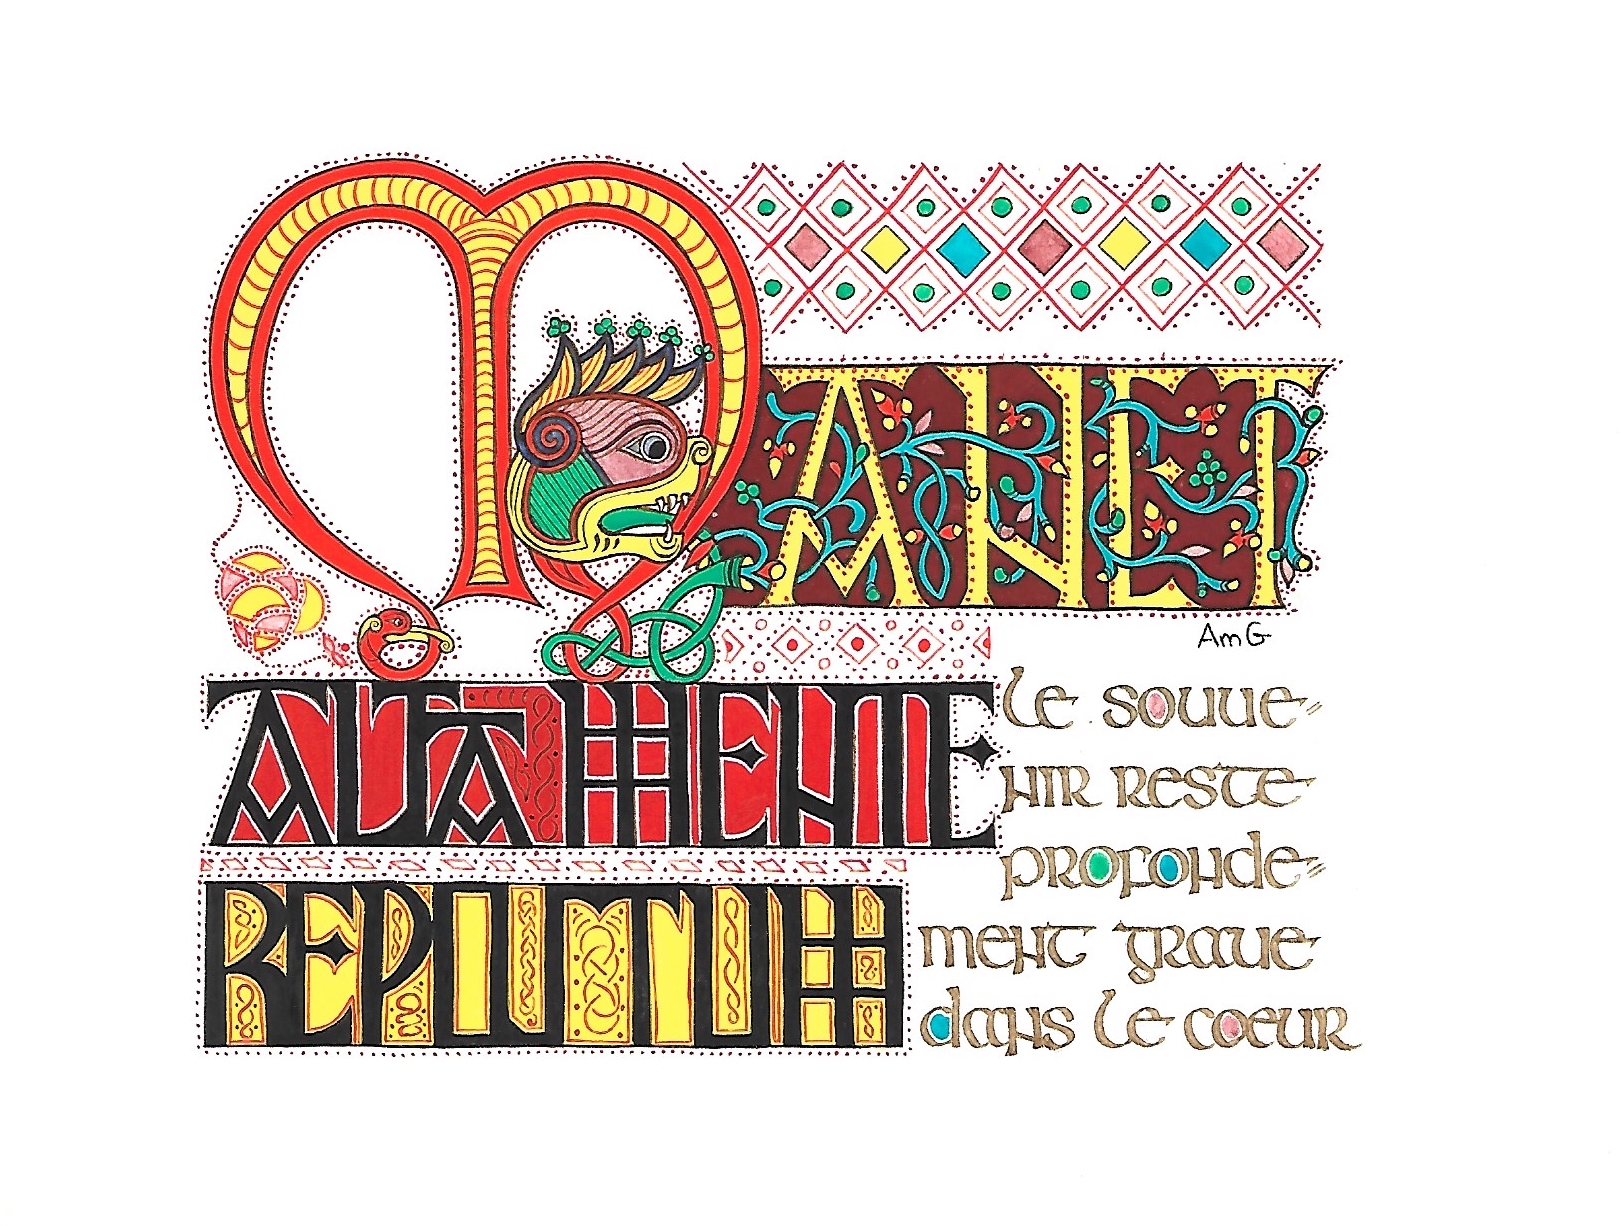 MANET
AmG
ALTA MENTE
REPOSTUM
le souve=
nir reste
profonde=
ment grave
dans le coeur